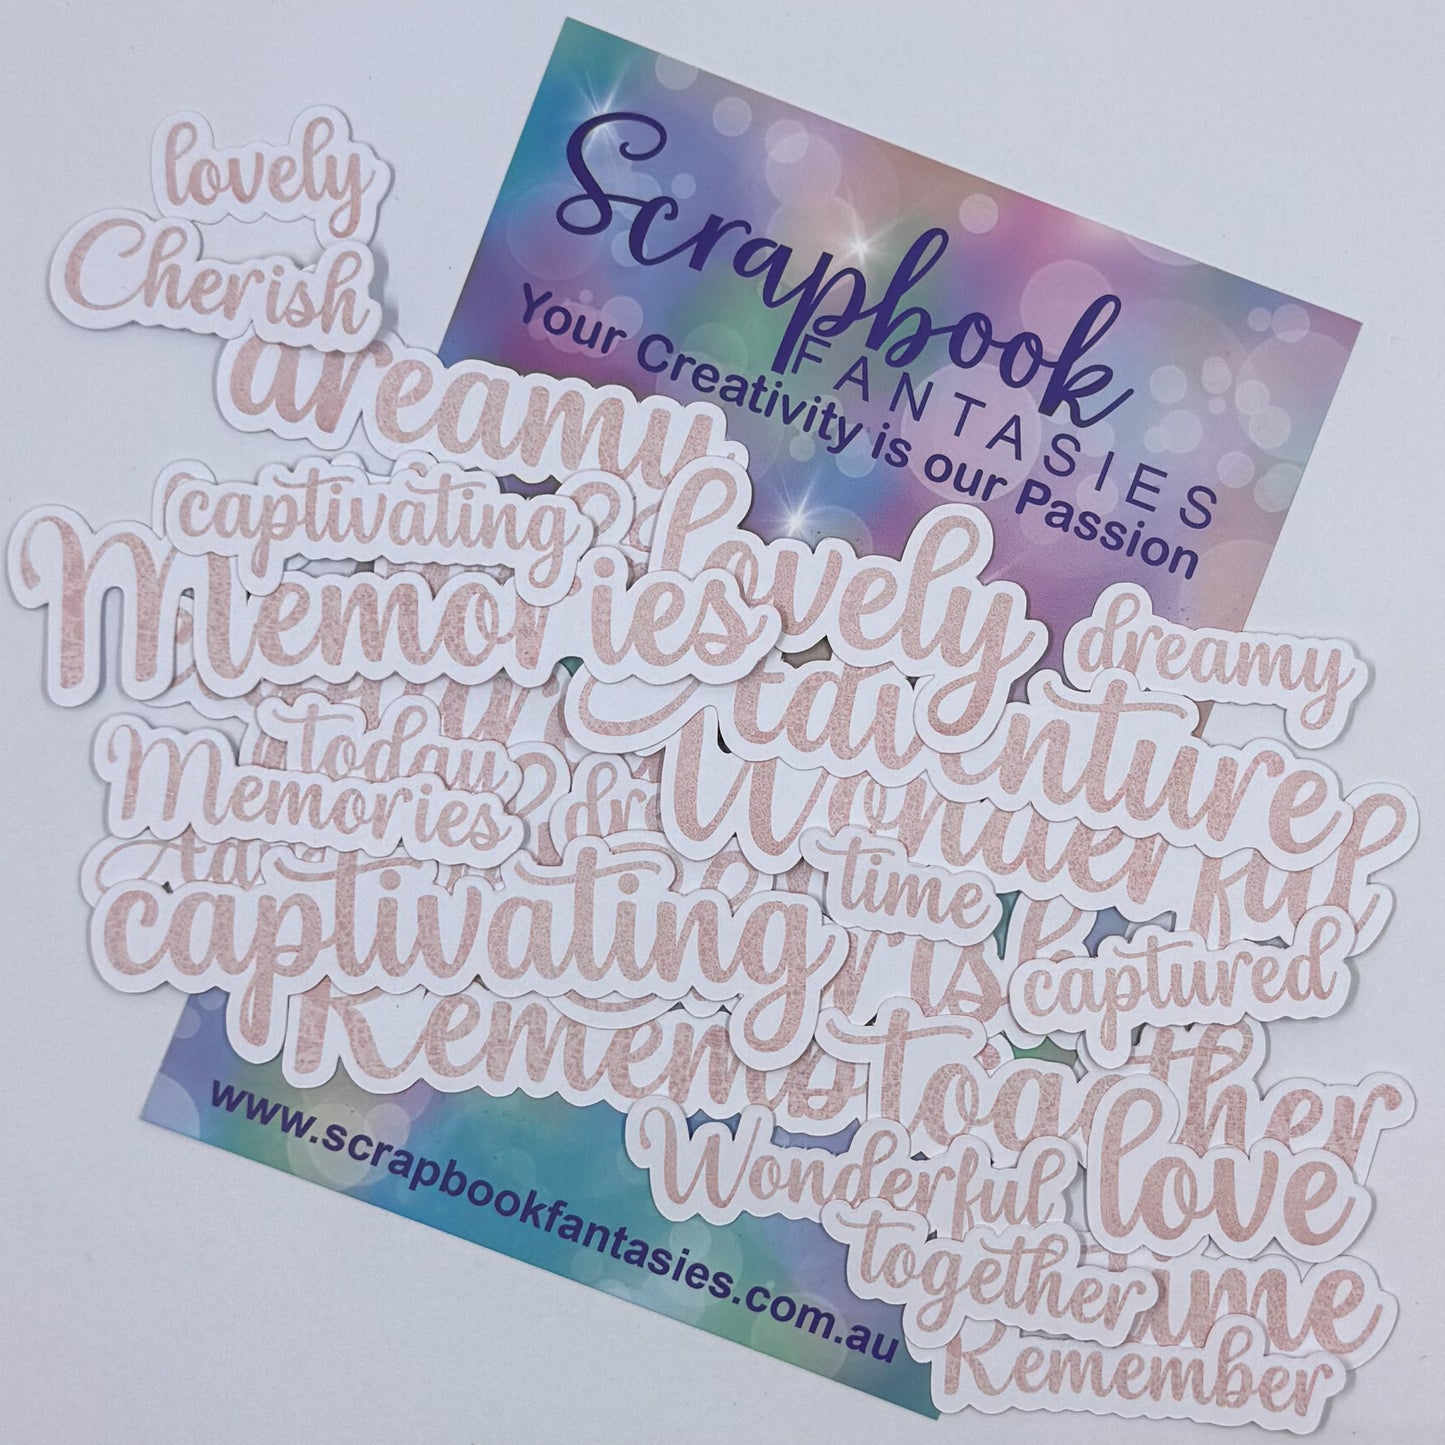 Scrapbook
FANTASIES
Your Creativity is our Passion
lovely
Cherish
dreamy
captivating
lovely
Memories
dreamy
adventure
today
Memories
Wonderful
time
captivating
captured
Remember
together
love
Wonderful
together
time
Remember
www.scrapbookfantasies.com.au